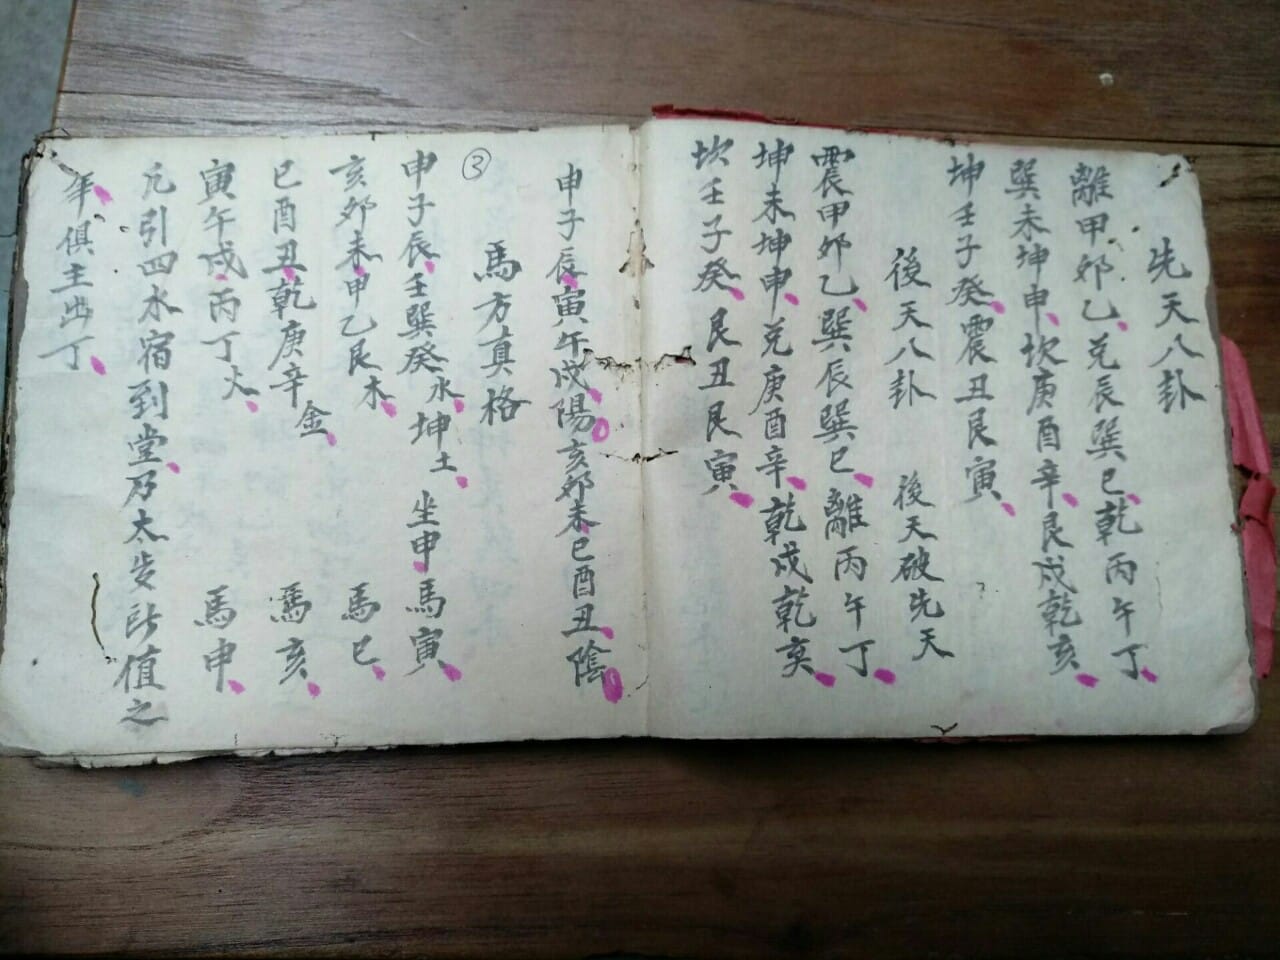 先天八卦
離甲卯乙、兌辰巽巳、乾丙午丁、
巽未坤申、坎庚酉辛、艮戌乾亥、
坤壬子癸、震丑艮寅、
後天八卦 後天破先天
震甲卯乙、巽辰巽巳、離丙午丁、
坤未坤申、兌庚酉辛、乾戌乾亥、
坎壬子癸、艮丑艮寅、
申子辰、寅午戌、陽。亥卯未、巳酉丑、陰。
馬方真格
③
申子辰、壬巽癸水、坤土、坐申、馬寅、
亥卯未、甲乙艮木、馬巳、
巳酉丑、乾庚辛金、馬亥、
寅午戌、丙丁火、馬申、
元引四水宿到堂、乃太歲所值之
年、俱主出丁、